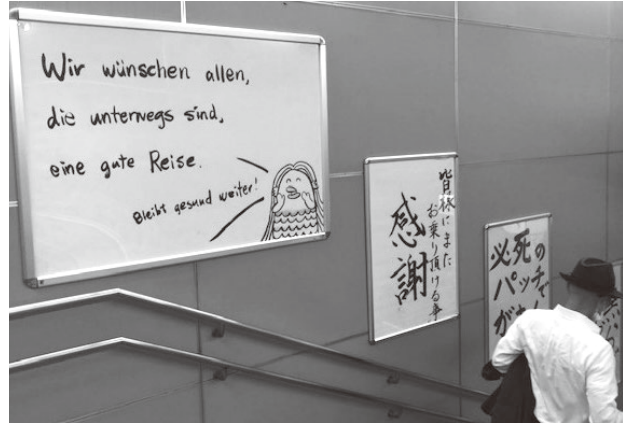 Wir wünschen allen,
die unterwegs sind,
eine gute Reise.
Bleibt gesund weiter!
皆様にまた
お乗り頂ける事
感謝
必死の
パッチで
が